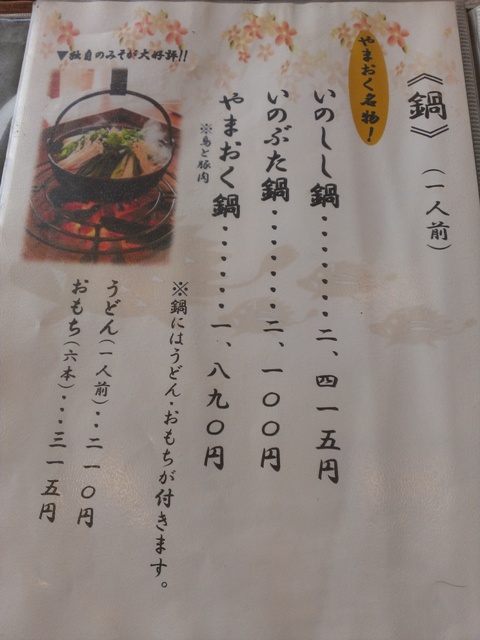 《鍋》（一人前）
やまおく名物！
いのしし鍋・・・・・・・・二、四一五円
いのぶた鍋・・・・・・・二、一〇〇円
やまおく鍋・・・・・・・一、八九〇円
※鳥と豚肉
▼独自のみそが大好評!!
※鍋にはうどん・おもちが付きます。
うどん（一人前）・・・二一〇円
おもち（六本）・・・三一五円